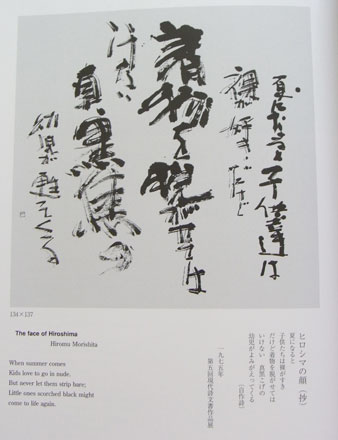 夏になると子供達は
裸が好き だけど
着物を脱がせては
いけない 真黒焦の
幼児が甦ってくる
134×137
The face of Hiroshima
Hiromu Morishita
When summer comes
Kids love to go in nude.
But never let them strip bare;
Little ones scorched black might
come to life again.
ヒロシマの顔(抄)
夏になると
子供たちは裸がすき
だけど着物を脱がせては
いけない 真黒こげの
幼児がよみがえってくる
(自作詩)
一九七五年
第五回現代詩文書作品展